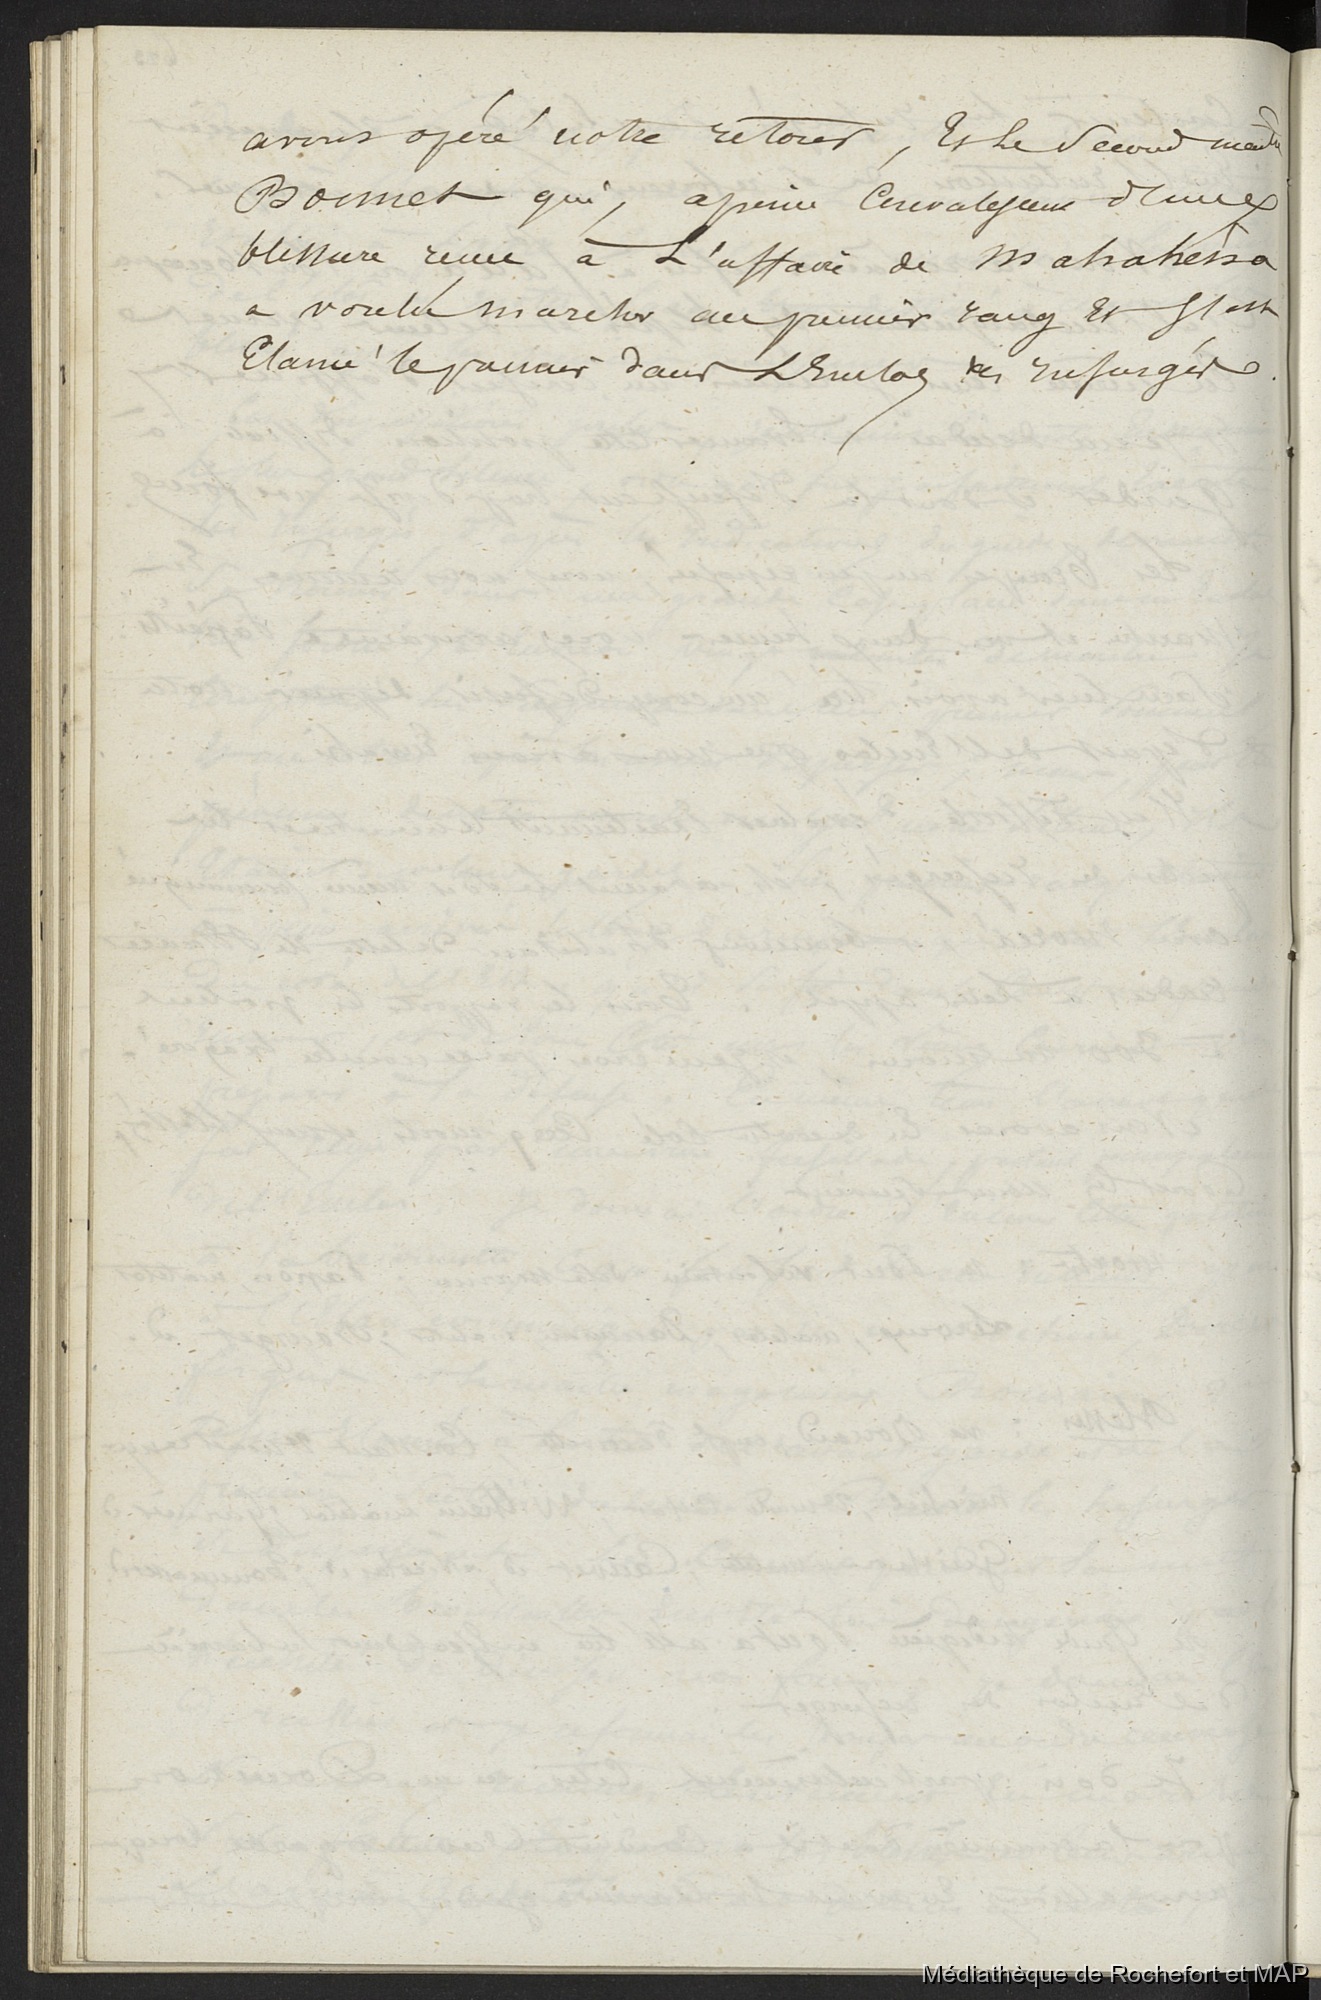 avons opéré notre retour, Et le Second maître
Bonnet qui, a peine Convalescent d'une
blessure reçue à L'affaire de Mahahéna
a voulu marcher au premier rang Et s'est
Elancé le premier dans L'Enclos des insurgés.
Médiathèque de Rochefort et MAP